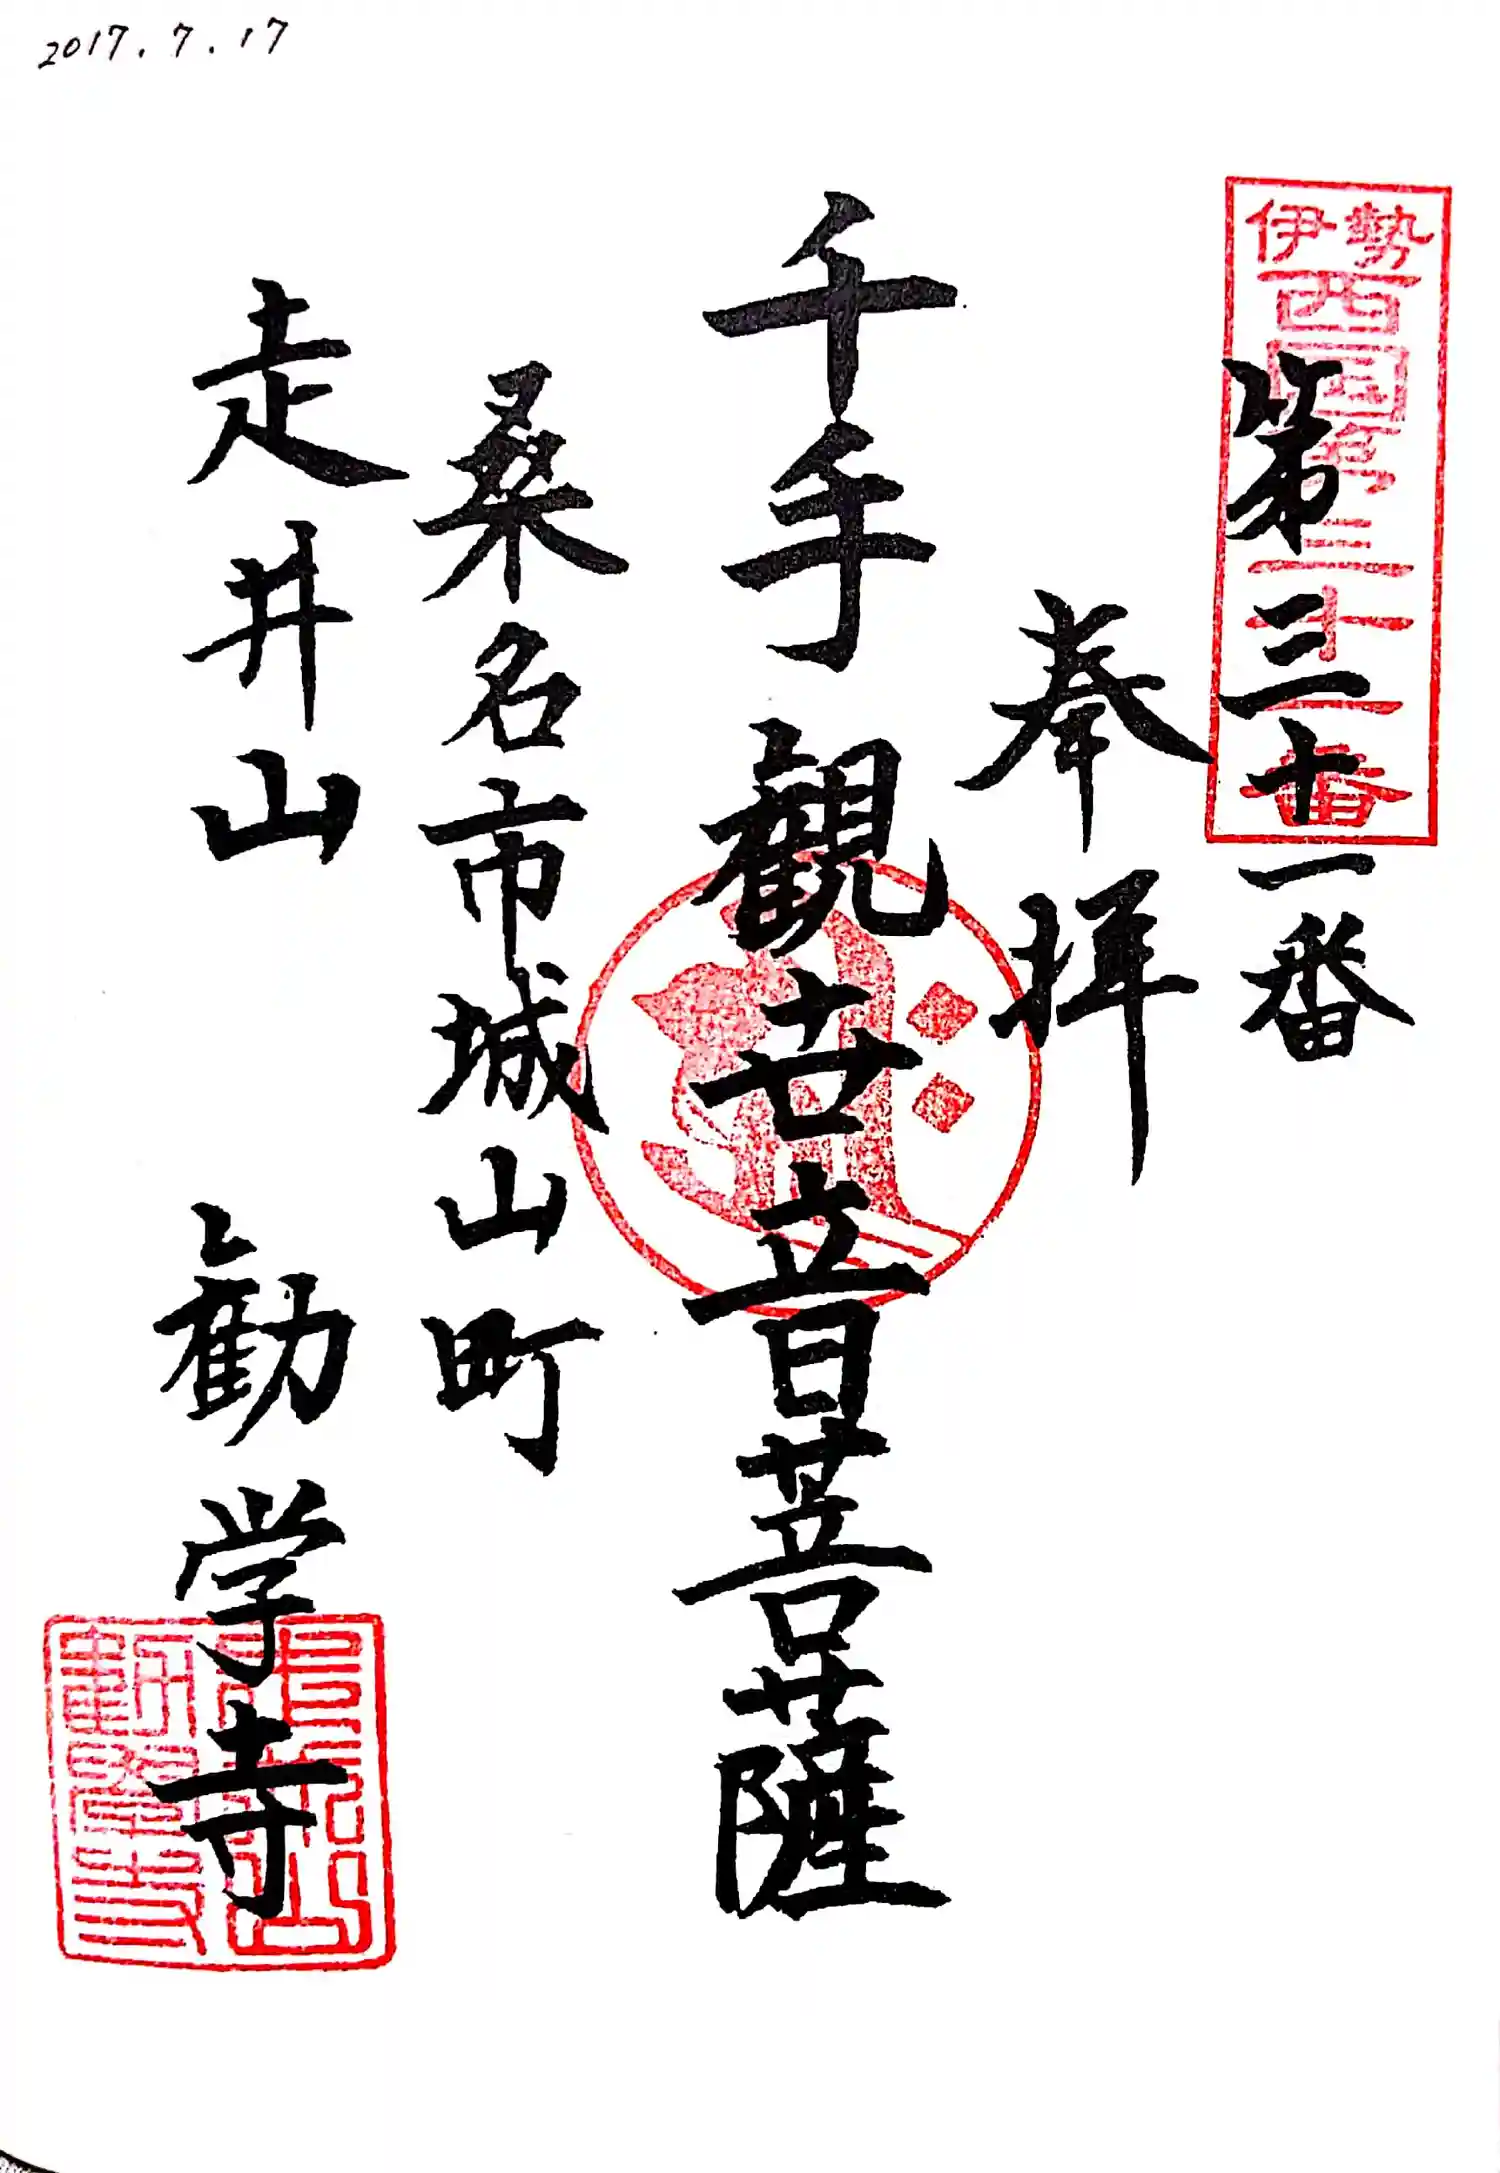 2017.7.17
伊勢
西国第三十一番
第三十一番
奉拝
千手観世音菩薩
桑名市城山町
走井山 勧学寺
走井山
勧学寺